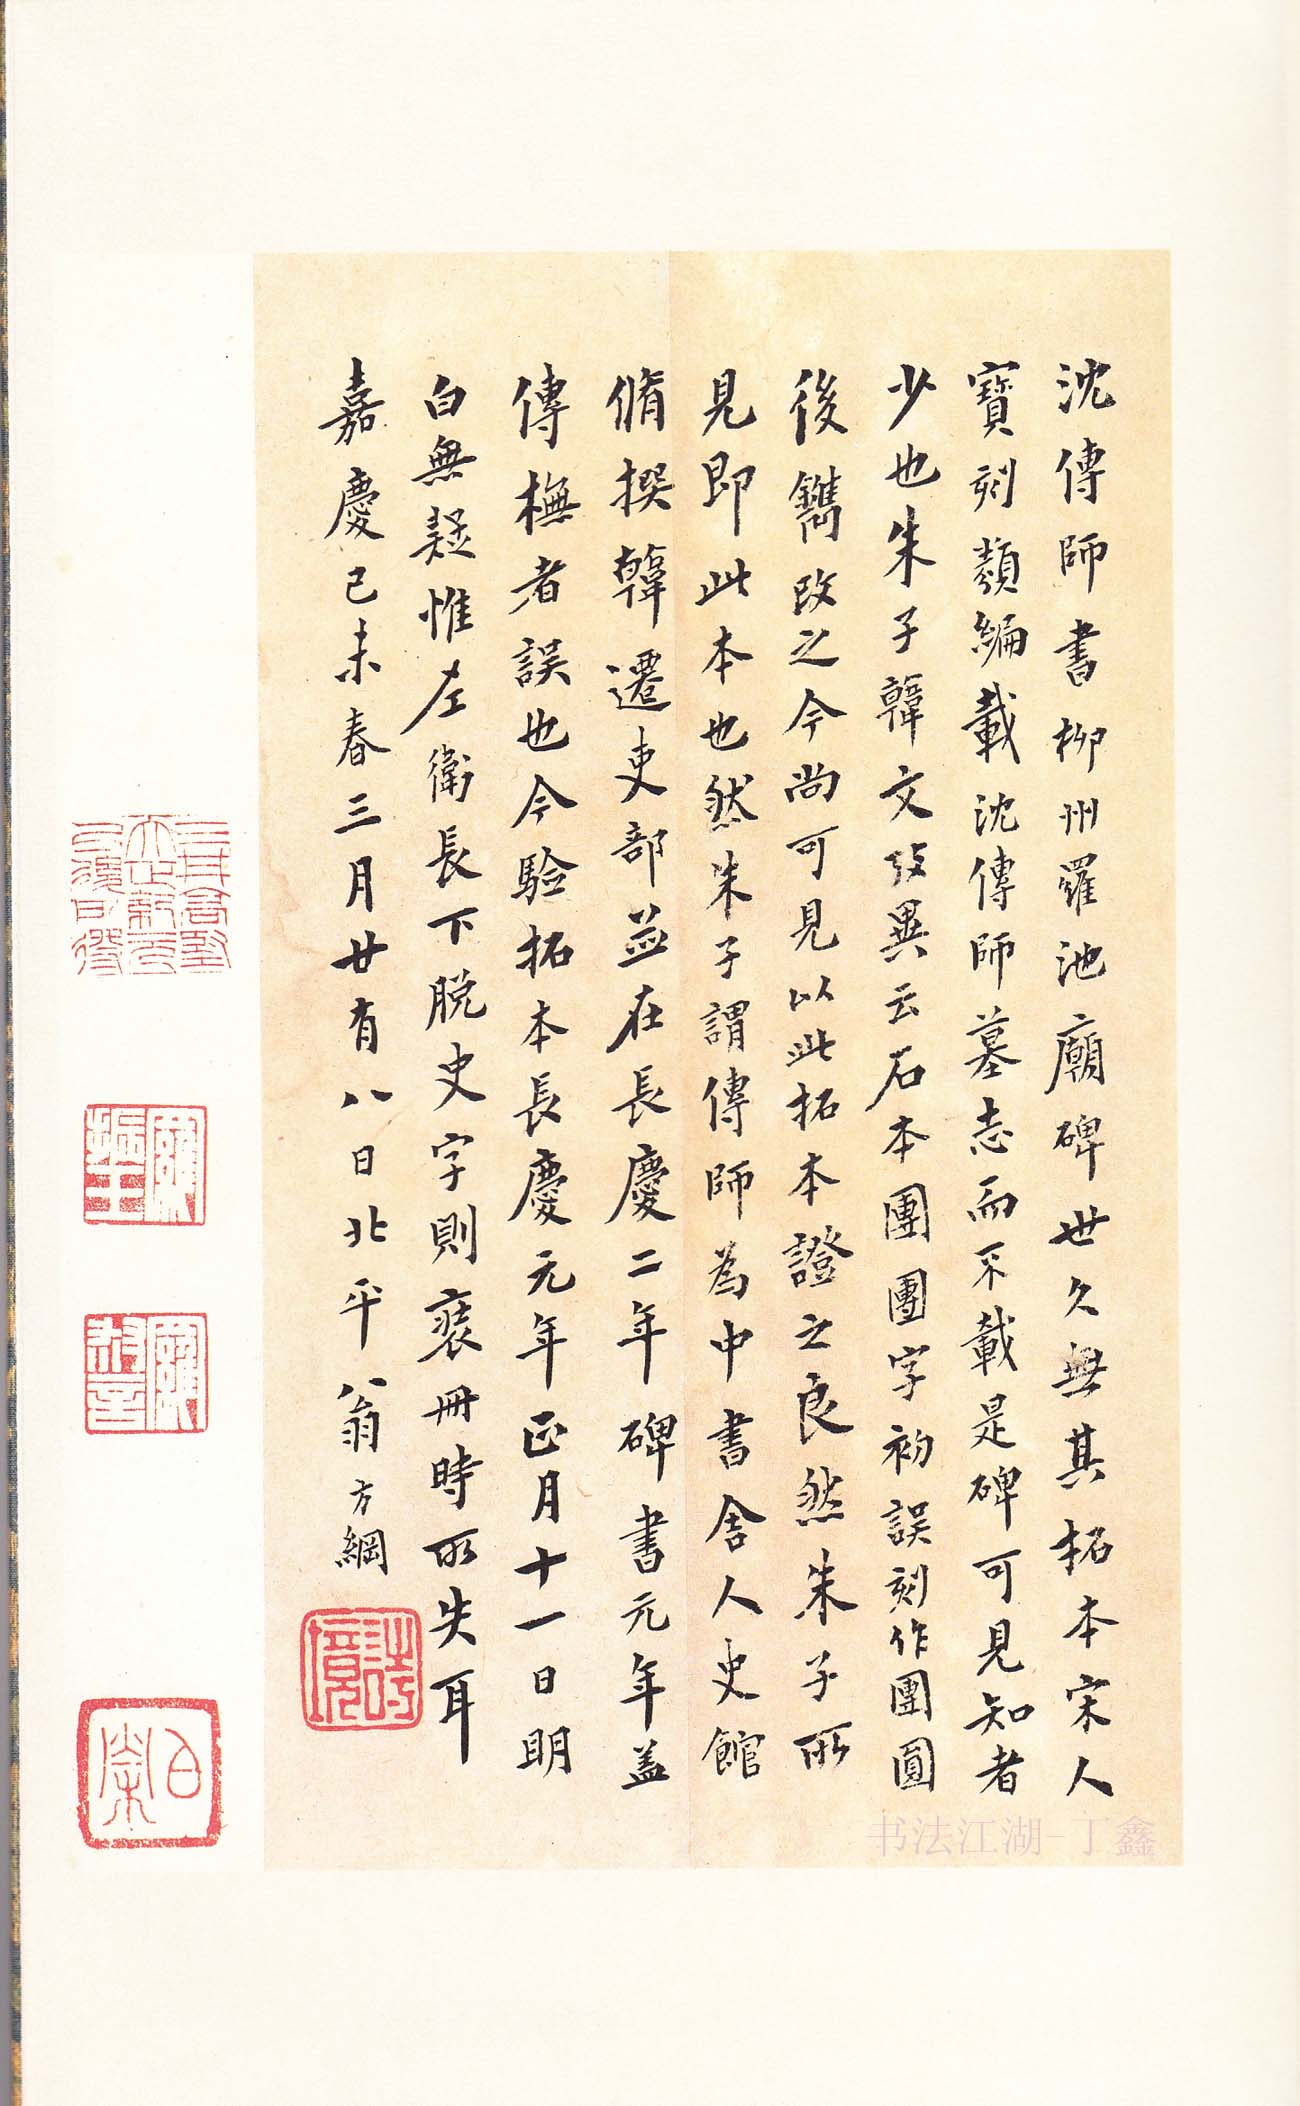 沈傳師書柳州羅池廟碑世久無其拓本宋人
寶刻類編載沈傳師墓志而不載是碑可見知者
少也朱子韓文攷異云石本團團字初誤刻作團圓
後鐫改之今尚可見以此拓本證之良然朱子所
見即此本也然朱子謂傳師為中書舍人史館
脩撰韓遷吏部並在長慶二年碑書元年蓋
傳橅者誤也今驗拓本長慶元年正月十一日明
白無疑惟左衛長下脫史字則裱冊時所失耳
嘉慶己未春三月廿有八日北平翁方綱
詩境
羅振玉
羅
百榮
书法江湖-丁鑫